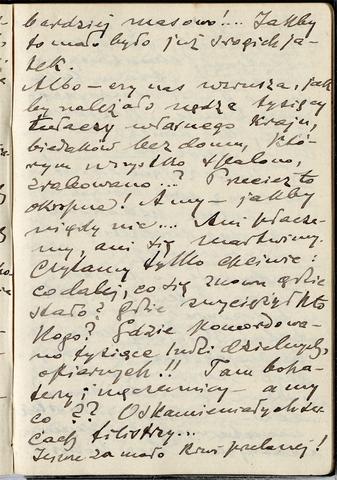 bardziej masowo!... Jakby
to mało było już srogich ja-
tek.
Albo – czy nas wzrusza, jak
by należało nędza tysięcy
tułaczy własnego kraju,
biedaków bez domu, któ-
rym wszystko spalono,
zrabowano...? Przecież to
okropne! A my – jakby
nigdy nic... Ani płacze-
my, ani się martwimy.
Czytamy tylko chciwie:
co dalej, co się znowu gdzie
stało? Gdzie zwyciężył kto
kogo? Gdzie pomordowa-
no tysiące ludzi dzielnych,
ofiarnych!! Tam boha-
terzy i męczennicy – a my
co?? O skamieniałych ser-
cach filistrzy...
Jeszcze za mało krwi przelanej!